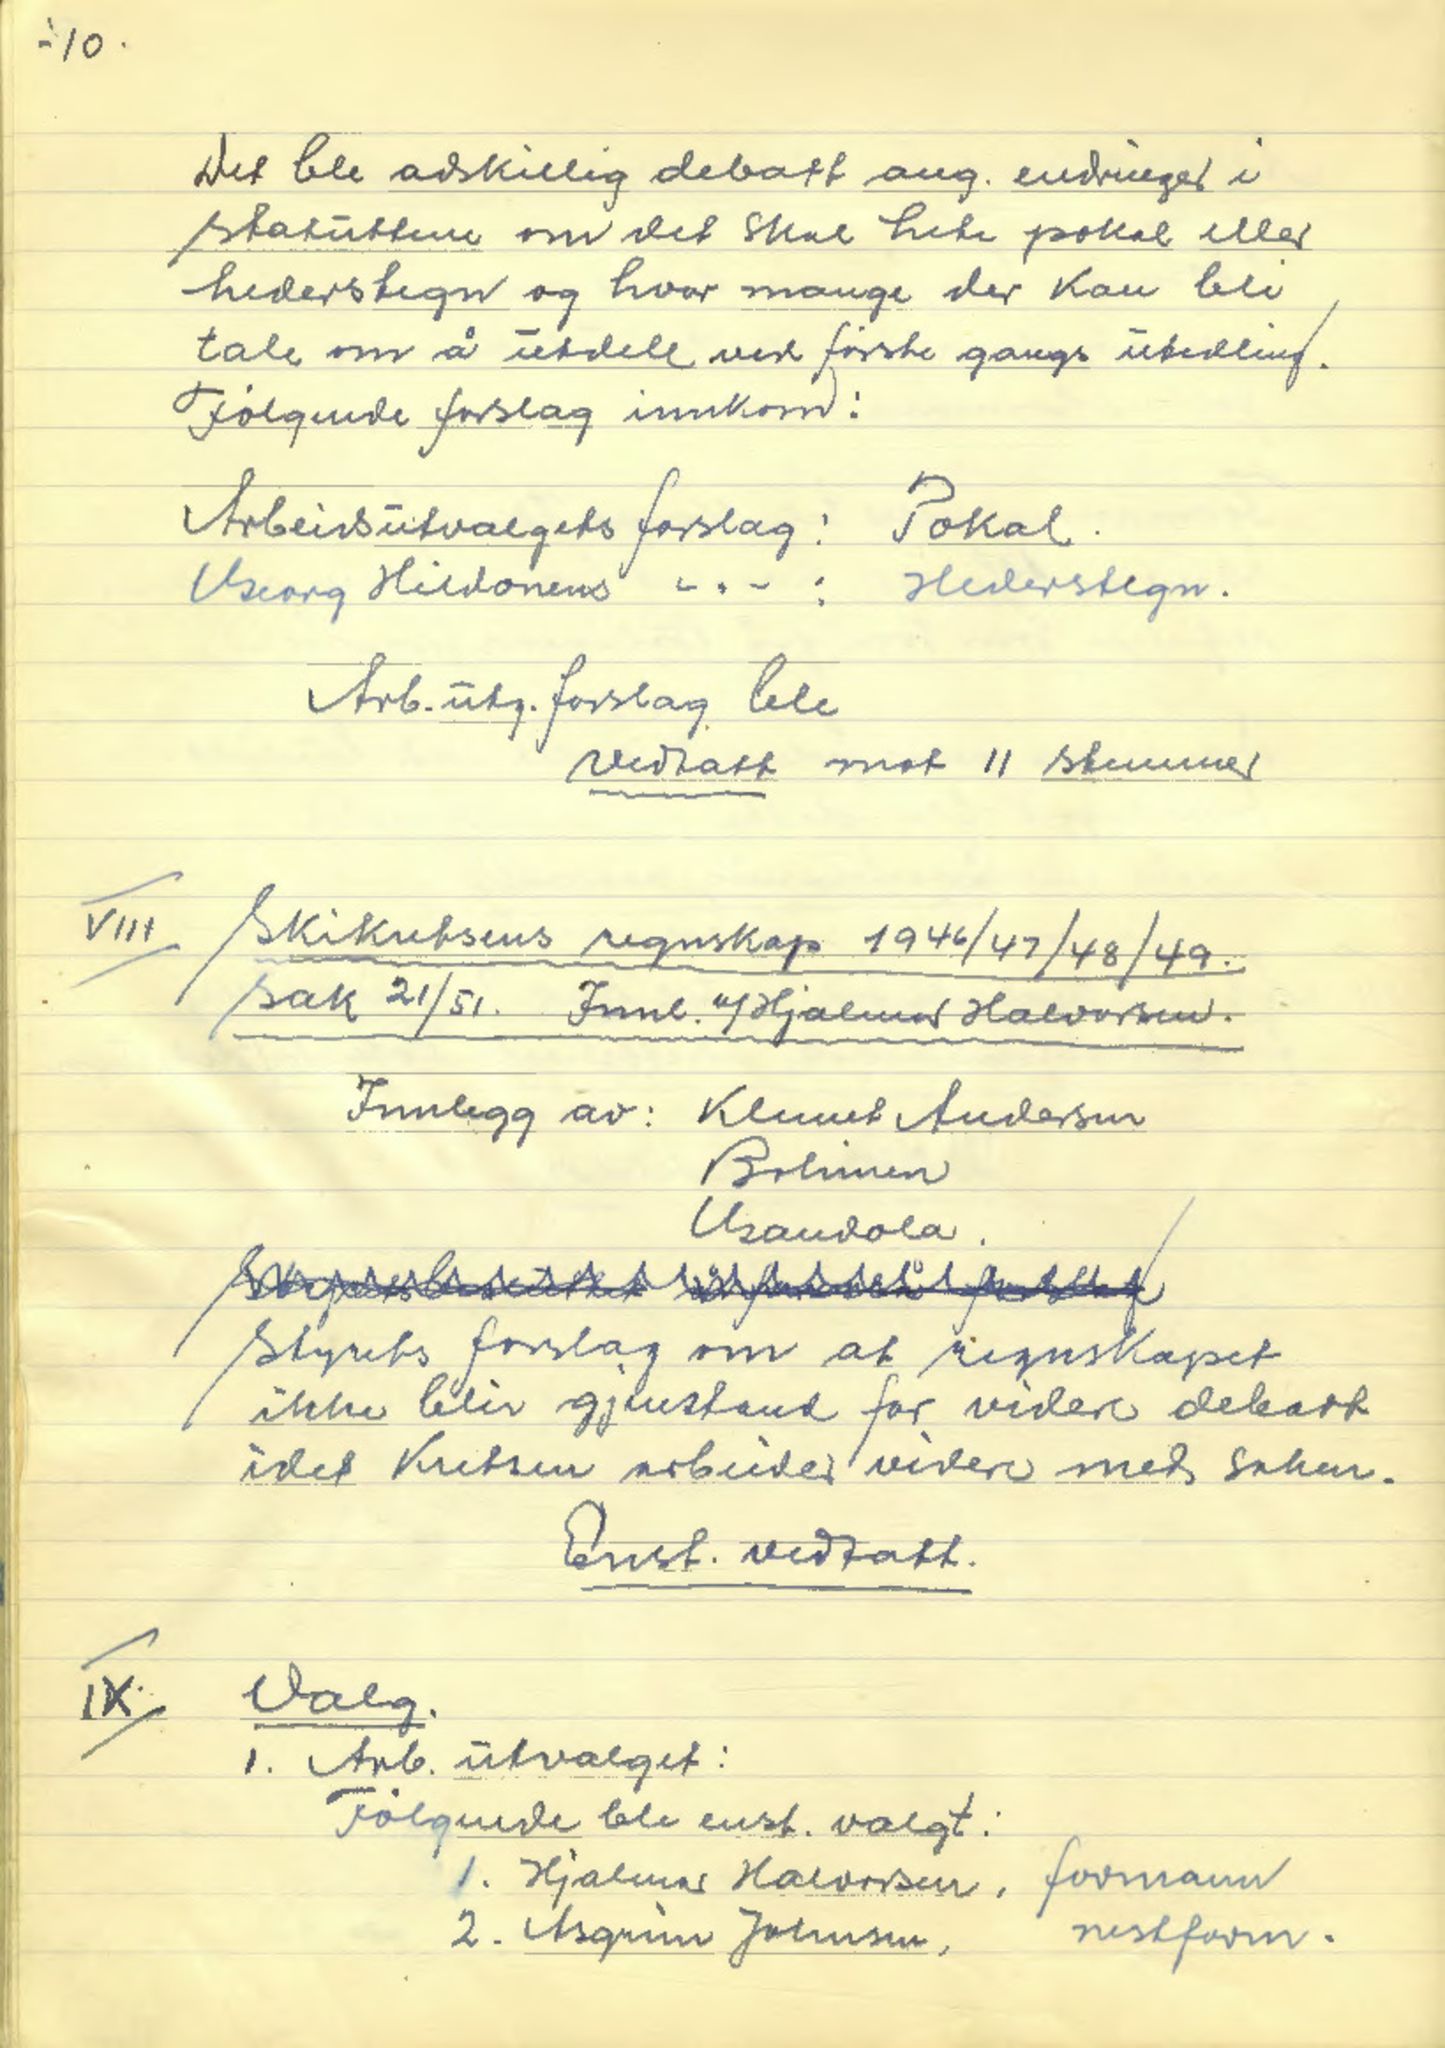 -10.
Det ble adskillig debatt ang. endringer i
statuttene om det skal hete pokal eller
hederstegn og hvor mange der kan bli
tale om å utdele ved förste gangs utedling.
Følgende forslag innkom:
Arbeidsutvalgets forslag: Pokal.
Georg Hildonens -"- : Hederstegn.
Arb. utg. forslag ble
vedtatt mot 11 stemmer
VIII Skikretsens regnskap 1946/47/48/49.
Sak 21/51. Innl. v/Hjalmar Halvorsen.
Innlegg av: Klemet Andersen
Bolinen
Usandola.
Styrets forslag om at regnskapet
ikke blir gjenstand for videre debatt
idet Kretsen arbeider videre med saken.
Enst. vedtatt.
IX. Valg.
1. Arb. utvalget:
Følgende ble enst. valgt:
1. Hjalmar Halvorsen, formann
2. Asgrim Johnsen, nestform.